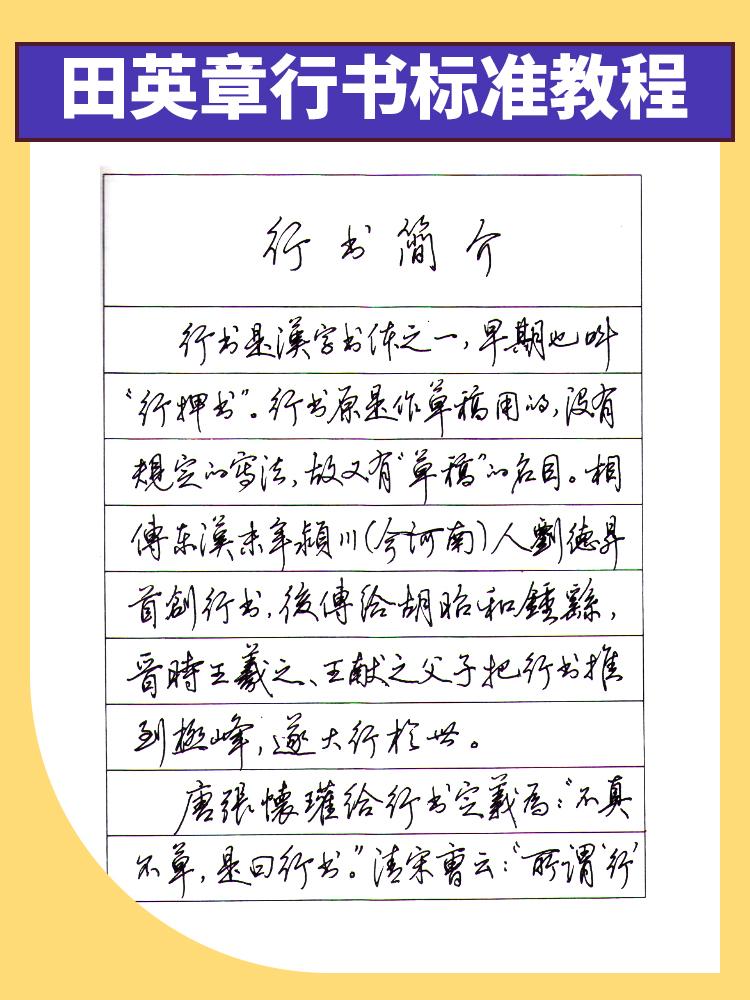 田英章行书标准教程
行书簡介
行书是漢字书体之一,早期也叫
“行押书”。行书原是作草稿用的,没有
規定的寫法,故又有“草稿”的名目。相
傳东漢末年潁川(今河南)人劉德昇
首創行书,後傳给胡昭和鍾繇,
晉時王羲之、王献之父子把行书推
到極峰,遂大行於世。
唐張懷瓘给行书定義為:“不真
不草,是曰行书。”清宋曹云:“所谓‘行’